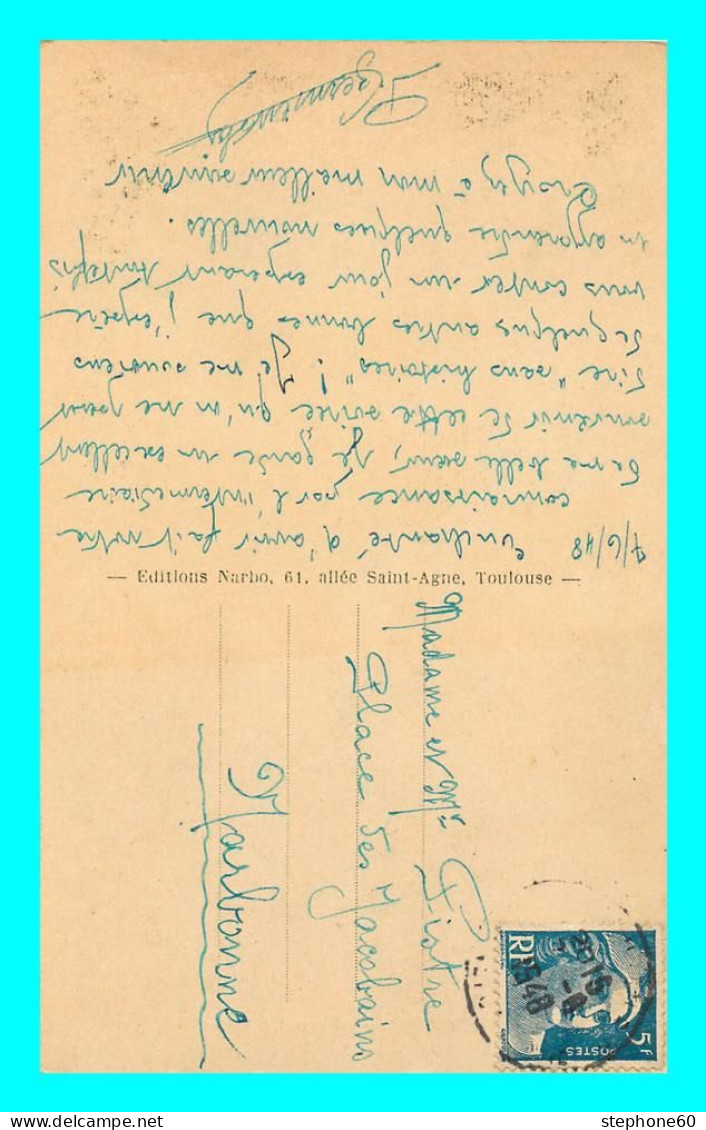 7/6/48
Enchanté d'avoir fait votre
connaissance par l'intermédiaire
de ma belle sœur, je garde un excellent
souvenir de cette soirée qu'on ne peut
dire "sans histoires"! Je me souviens
de quelques autres bonnes que j'espère
vous conter un jour espérant toutefois
en apprendre quelques nouvelles.
Croyez à mon meilleur souvenir
— Editions Narbo, 61, allée Saint-Agne, Toulouse —
Madame et Mr Pistre
Place des Jacobins
Narbonne
RF
POSTES
5f
stephone60